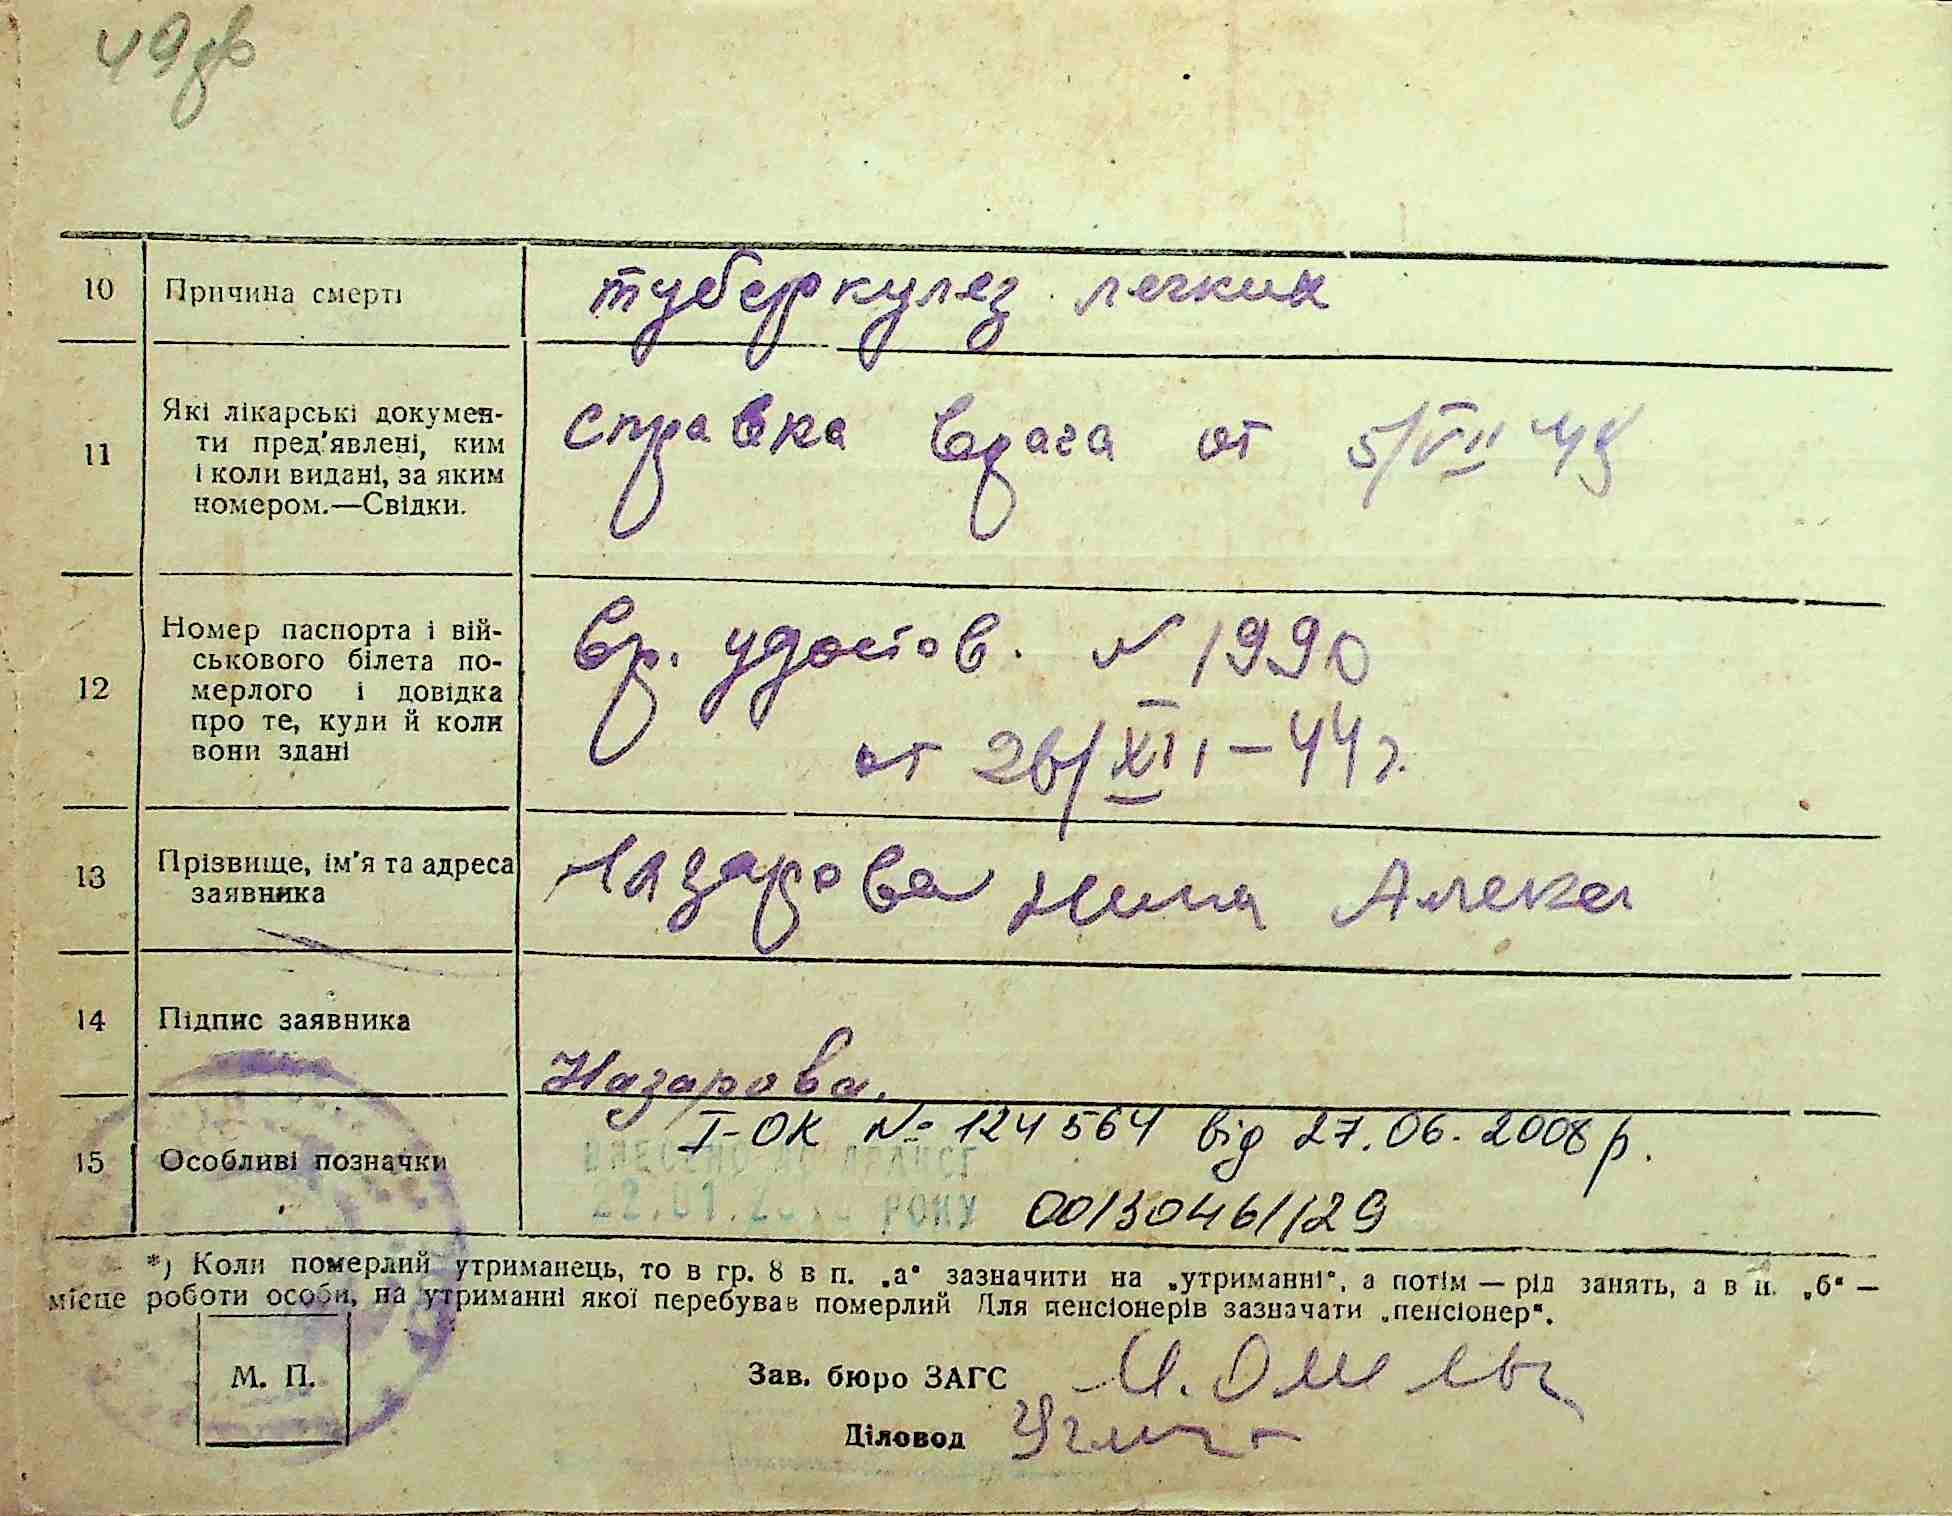 10 Причина смерті туберкулез легких
11 Які лікарські докумен-
ти пред'явлені, ким
і коли видані, за яким
номером.—Свідки.
справка врача от 5/VII 48
12 Номер паспорта і вій-
ськового білета по-
мерлого і довідка
про те, куди й коли
вони здані
вр. удостов. № 1990
от 26/XII – 44 г.
13 Прізвище, ім'я та адреса
заявника
Назарова Нина Алекс
14 Підпис заявника
Назарова.
15 Особливі позначки
І-ОК № 124564 від 27.06.2008 р.
ВНЕСЕНО ДО
22.01. РОКУ
00130461129
*) Коли померлий утриманець, то в гр. 8 в п. „а“ зазначити на „утриманні“, а потім — рід занять, а в п. „б“ —
місце роботи особи, на утриманні якої перебував померлий Для пенсіонерів зазначати „пенсіонер“.
М. П.
Зав. бюро ЗАГС
Діловод